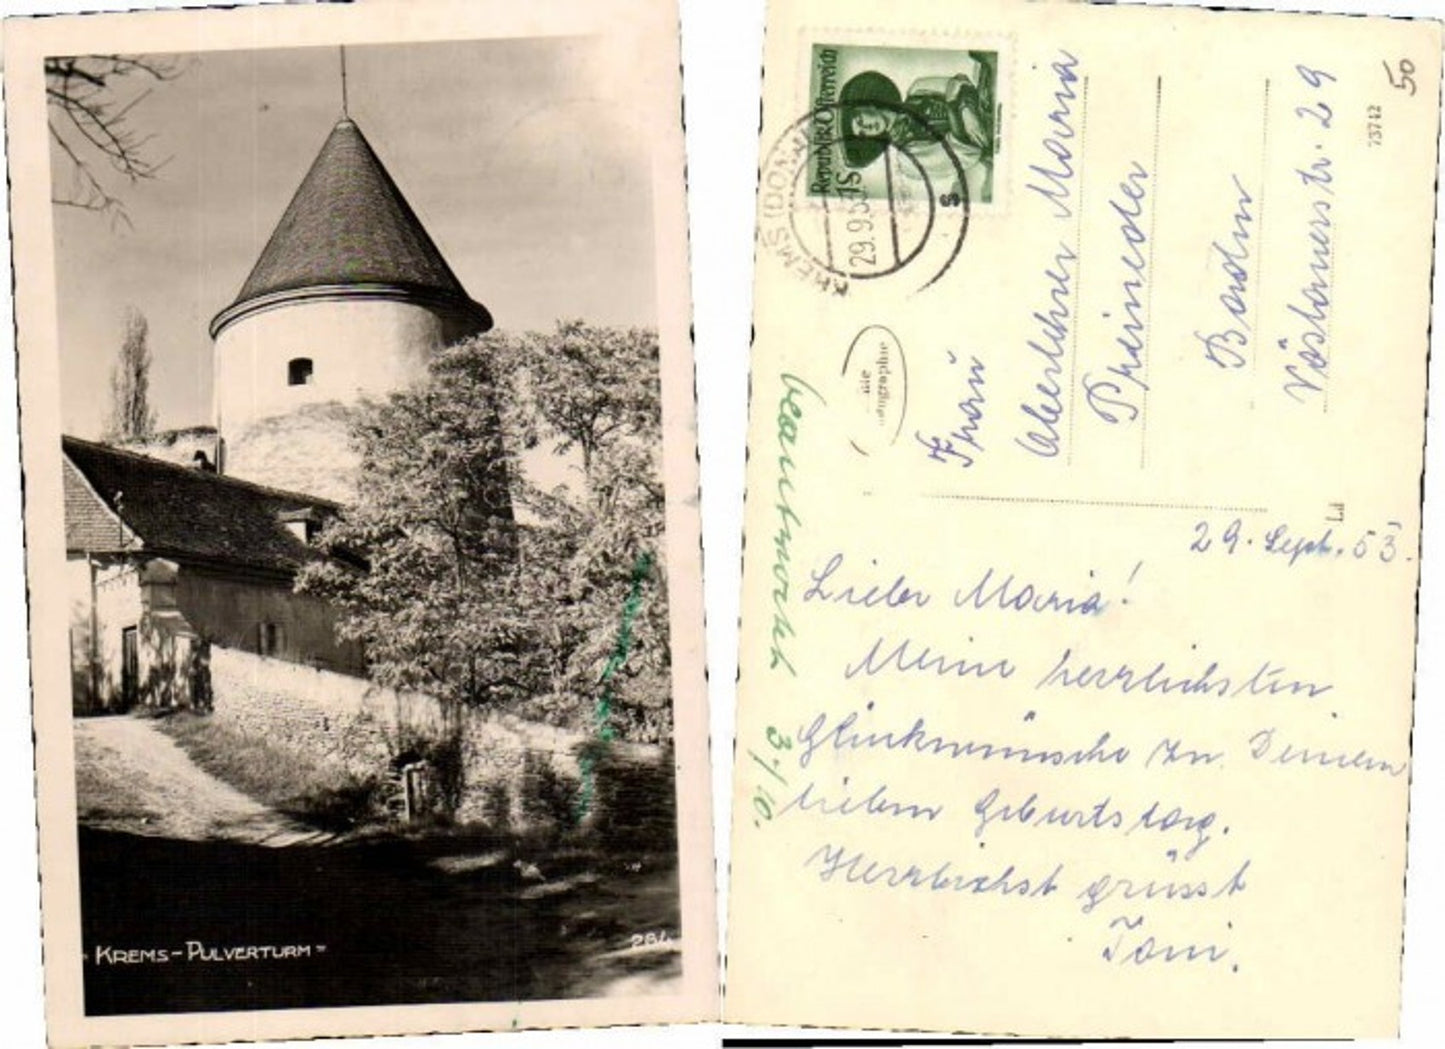 KREMS-PULVERTURM
284
Republik Österreich
1S
KREMS (DONAU)
29.9.53
s
Echte
Photographie
50
73712
Frau
Oberlehrer Maria
Baden
Vöslauerstr. 29
Ld
beantwortet 3./10.
29. Sept. 53.
Liebe Maria!
Meine herzlichsten
Glückwünsche zu Deinem
lieben Geburtstag.
Herzlichst grüsst
Toni.